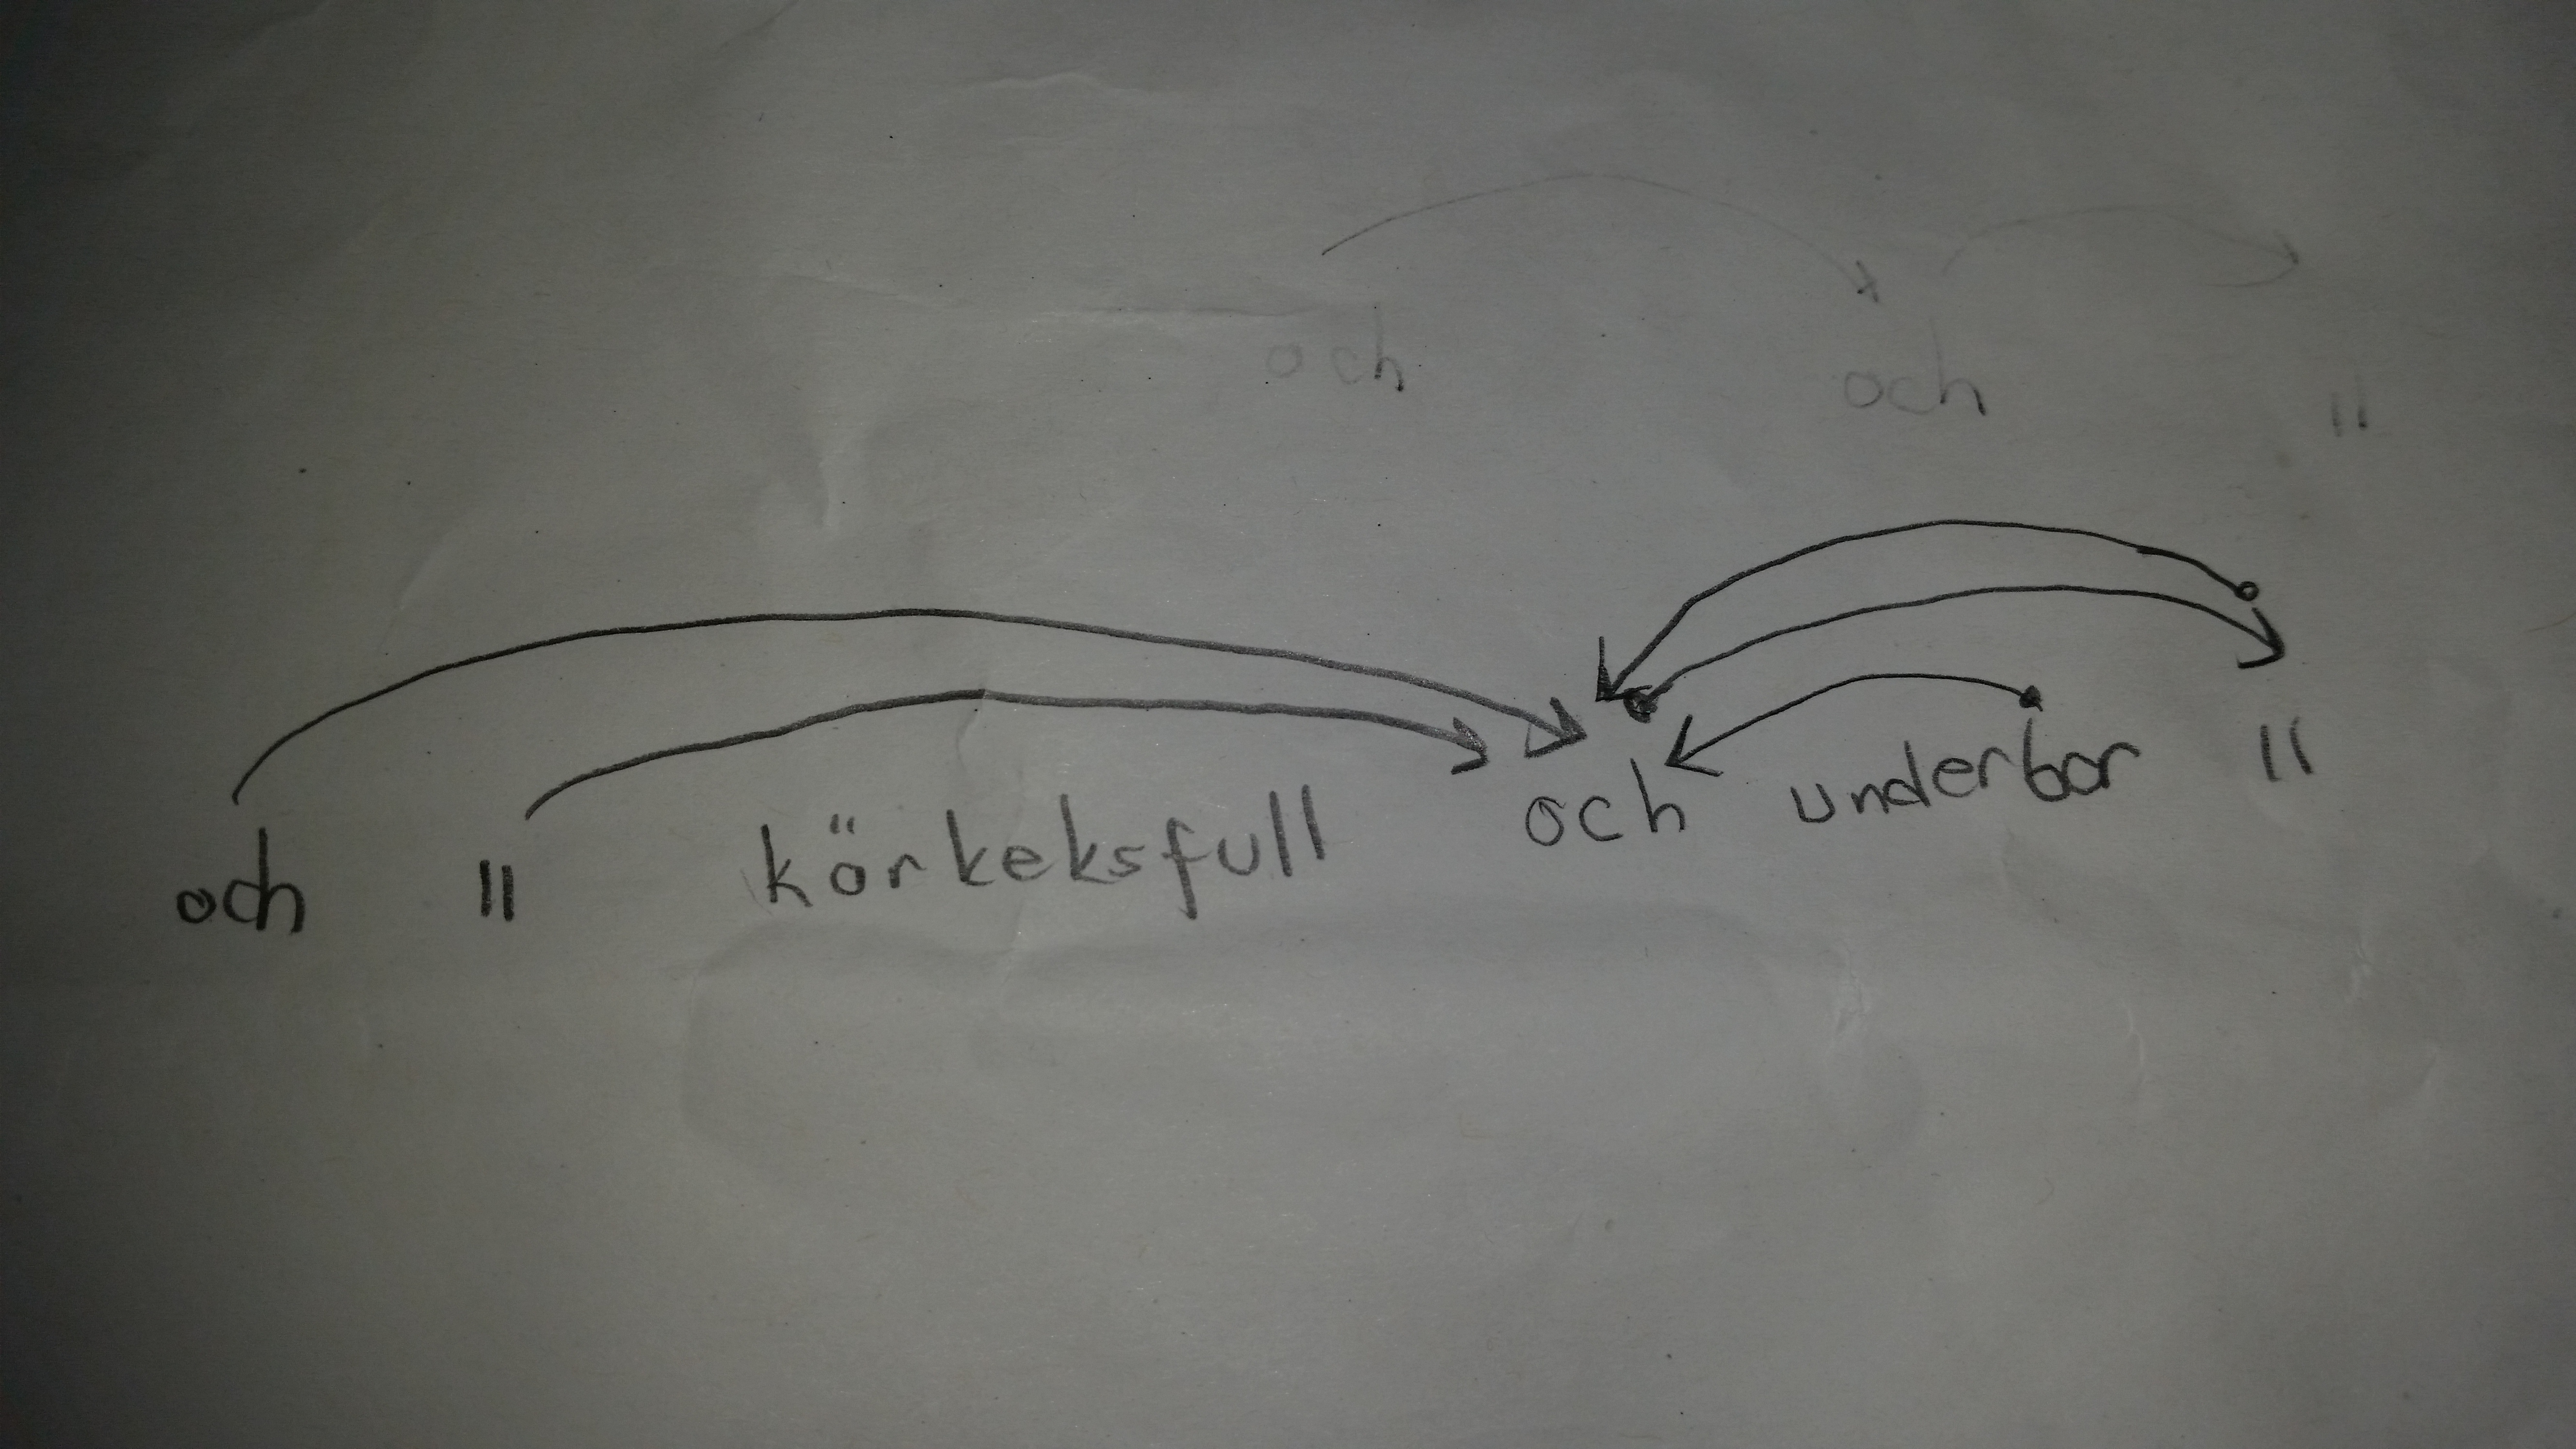 och och "
och " körkeksfull och underbar "